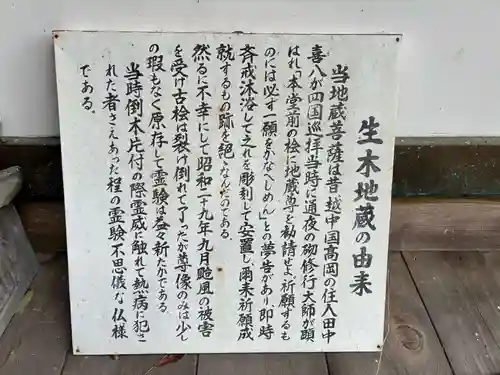 生木地蔵の由来
当地蔵菩薩は昔越中国高岡の住人田中
喜八が四国巡拝当時に通夜の砌修行大師が顕
はれ「本堂前の桧に地蔵尊を勧請せよ祈願するも
のには必ず一願をかなへしめん」との夢告があり、即時
斉戒沐浴して之れを彫刻して安置し、爾来祈願成
就するもの跡を絶へなんだのである。
然るに不幸にして昭和二十九年九月颱風の被害
を受け古桧は裂け倒れて了ったが尊像のみは少し
の瑕もなく原存して霊験は益々新たかである。
当時倒木片付の際霊威に触れて熱病に犯さ
れた者さえあった程の霊験不思儀な仏様
である。